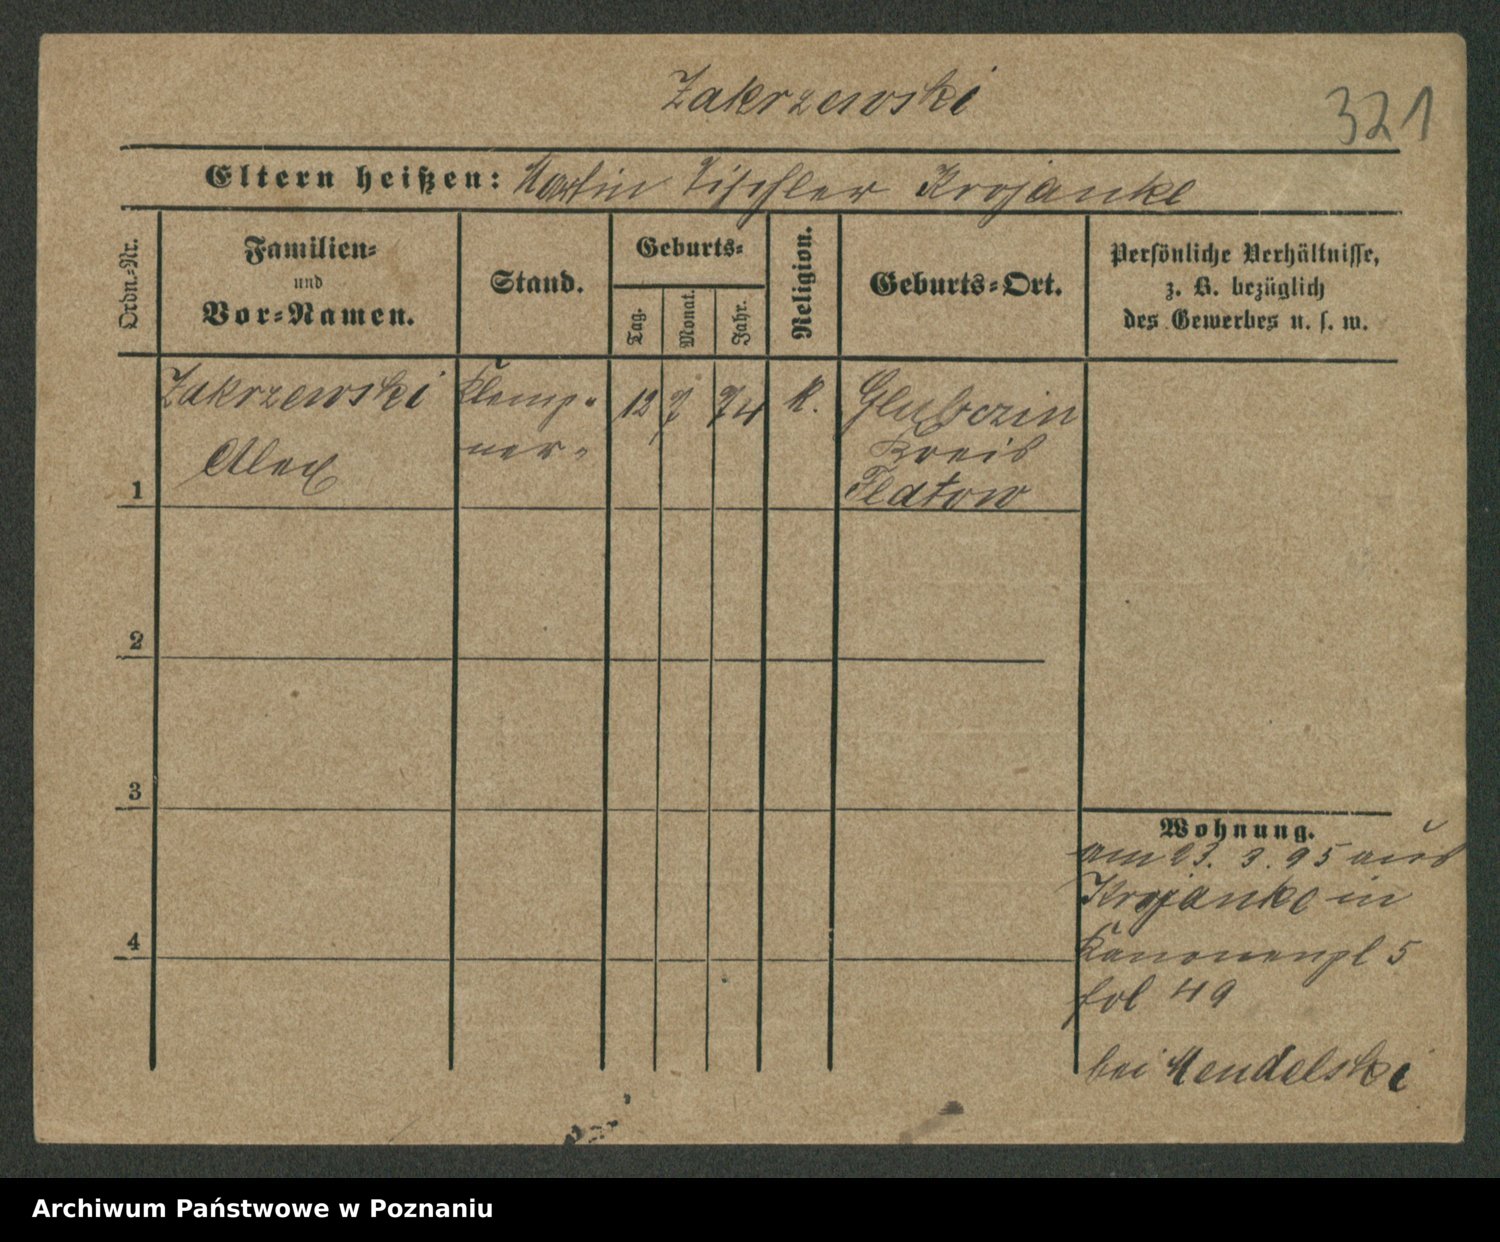 Zakrzewski
321
Eltern heißen: Martin Tischler Krojanke
Ordn.-Nr.
Familien-
und
Vor-Namen.
Stand.
Geburts-
Tag.
Monat.
Jahr.
Religion.
Geburts-Ort.
Persönliche Verhältnisse,
z. B. bezüglich
des Gewerbes u. s. w.
1
Zakrzewski
Alex
Klemp-
ner
12 7 74
K.
Glubczin
Kreis
Flatow
2
3
4
Wohnung.
am 23. 3. 95 aus
Krojanke in
Kanonenpl 5
fol 49
bei Mendelski
Archiwum Państwowe w Poznaniu